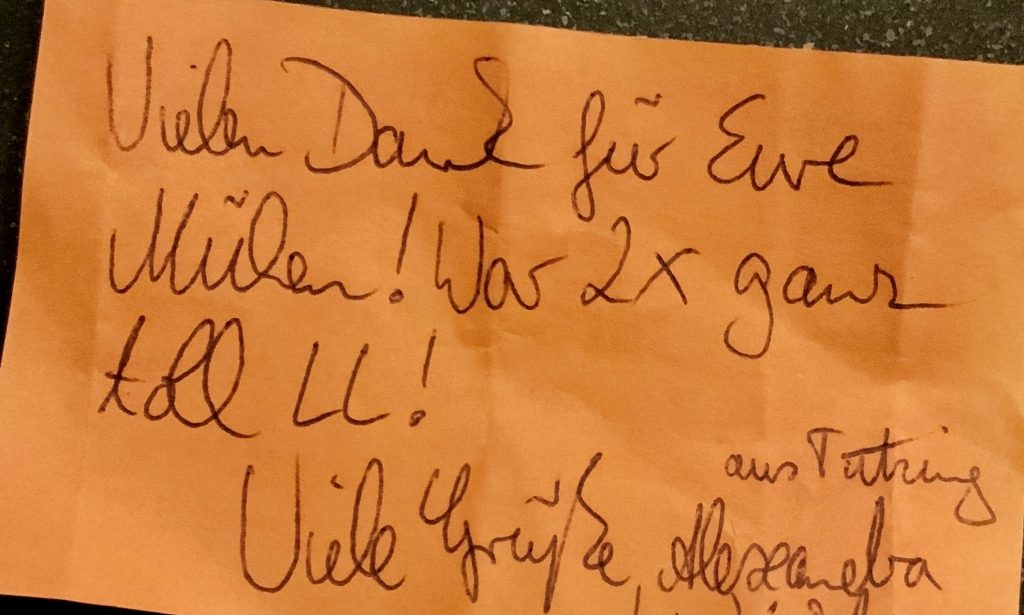 Vielen Dank für Eure
Mühen! War 2x ganz
toll LL!
aus Tutzing
Viele Grüße, Alexandra